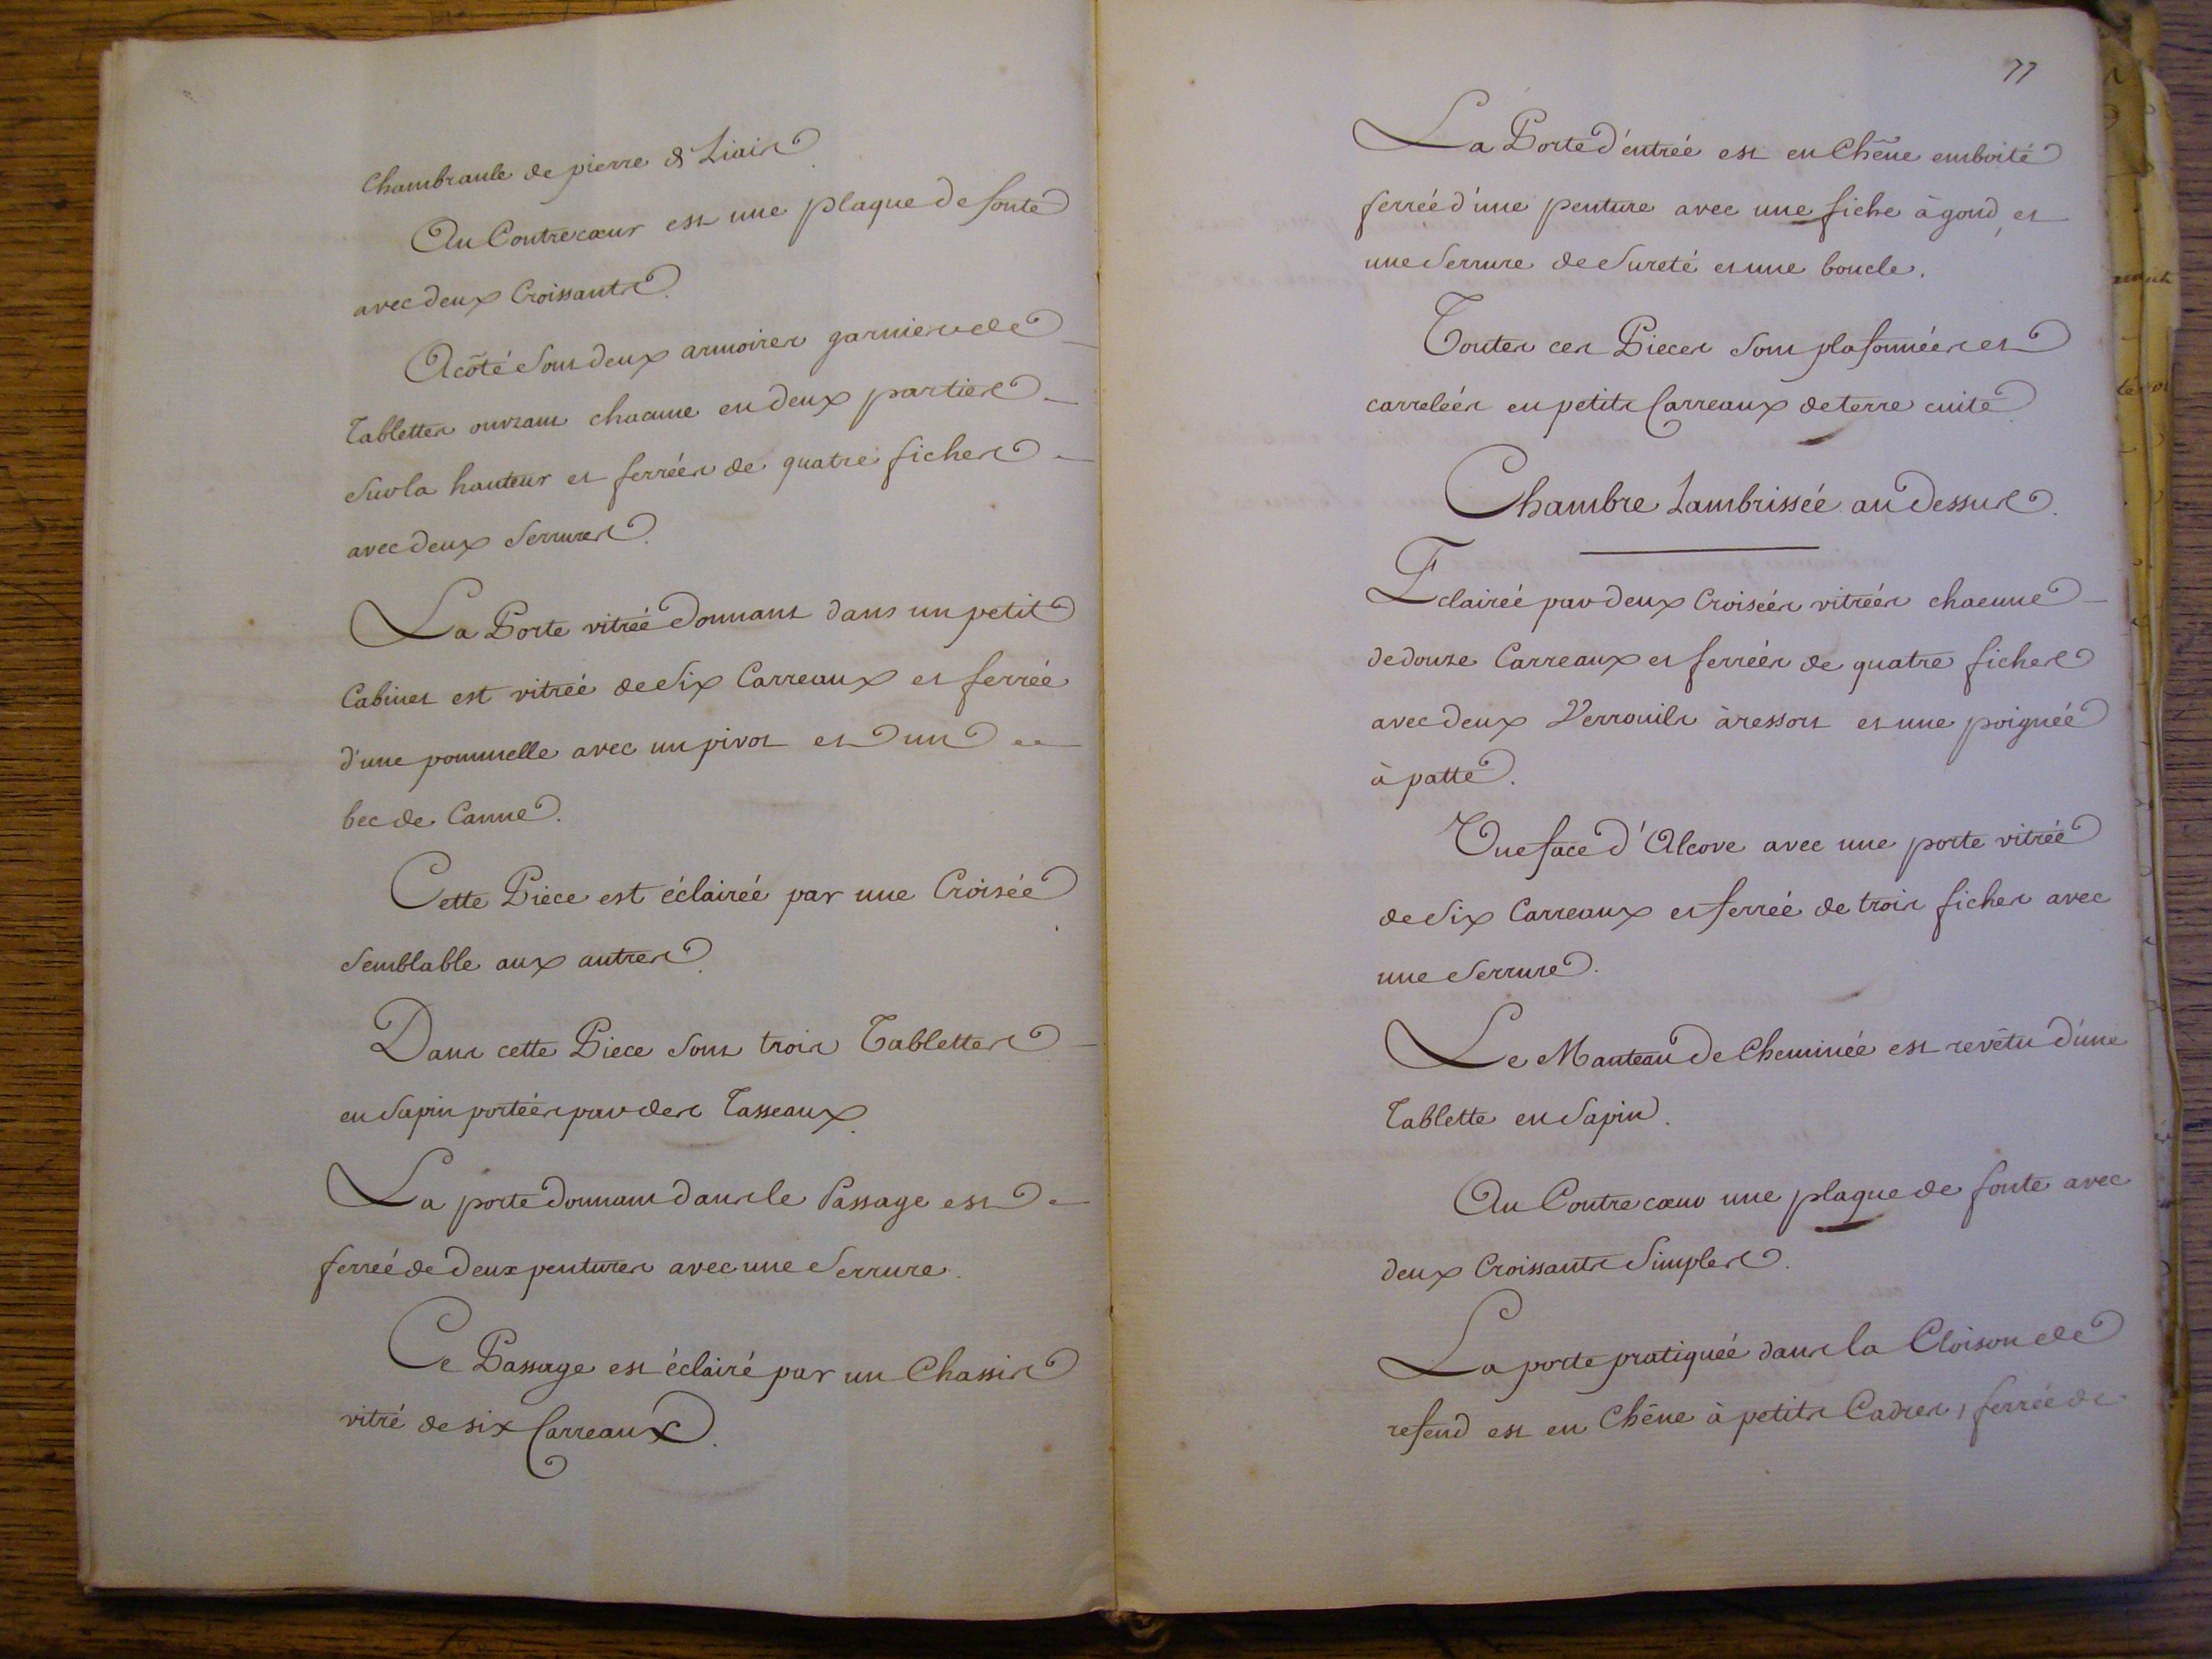 Chambranle de pierre de Liais
Au Contrecœur est une plaque de fonte
avec deux Croissants.
A côté sont deux armoires garnies de
Tablettes ouvrant chacune en deux parties
sur la hauteur et ferrées de quatre fiches
avec deux Serrures.
La Porte vitrée donnant dans un petit
Cabinet est vitrée de Six Carreaux et ferrée
d'une pommelle avec un pivot et un
bec de Canne.
Cette Piece est éclairée par une Croisée
Semblable aux autres.
Dans cette Piece sont trois Tablettes
en Sapin portées par des Tasseaux.
La porte donnant dans le Passage est
ferrée de deux pentures avec une Serrure.
Ce Passage est éclairé par un Chassis
vitré de six Carreaux.
77
La Porte d'entrée est en Chêne emboité
ferrée d'une penture avec une fiche à gond, et
une Serrure de Sureté et une boucle.
Toutes ces Pieces sont plafonnées et
carrelées en petits Carreaux de terre cuite.
Chambre Lambrissée au dessus.
Eclairée par deux Croisées vitrées chacune
de douze Carreaux et ferrées de quatre fiches
avec deux Verrouils à ressort et une poignée
à patte.
Une face d'Alcove avec une porte vitrée
de Six Carreaux et ferrée de trois fiches avec
une Serrure.
Le Manteau de Cheminée est revêtu d'une
Tablette en Sapin.
Au Contrecœur une plaque de fonte avec
deux Croissants Simples.
La porte pratiquée dans la Cloison de
refend est en Chêne à petits Cadres, ferrée de